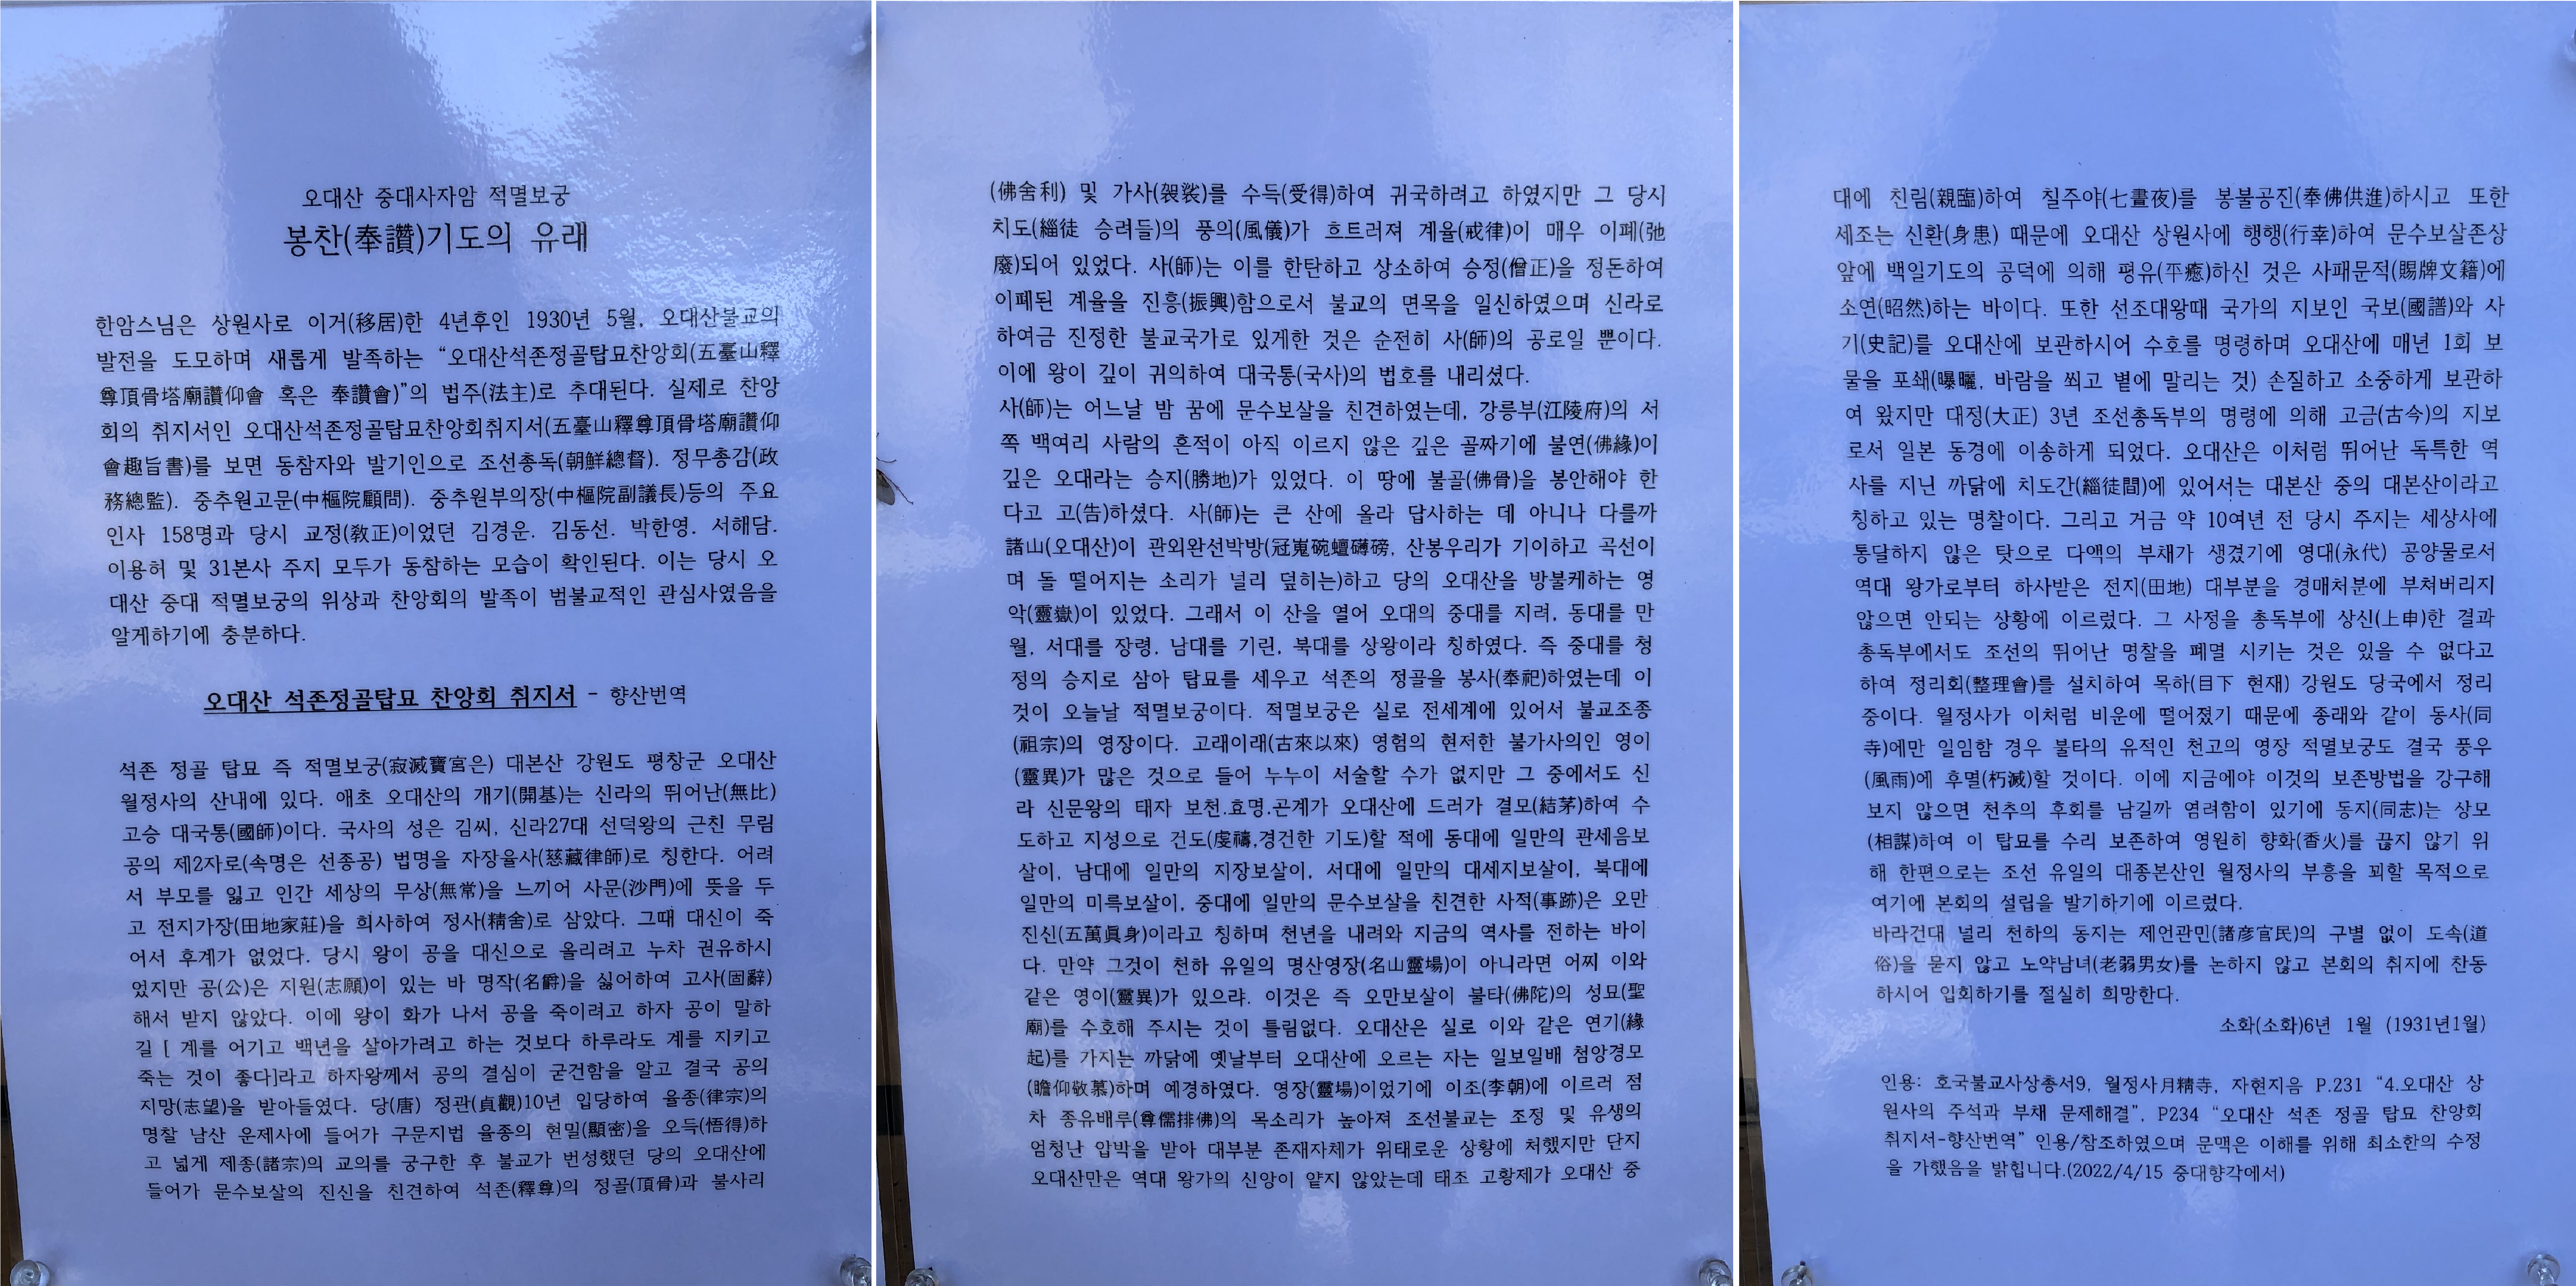 오대산 중대사자암 적멸보궁
봉찬(奉讚)기도의 유래
한암스님은 상원사로 이거(移居)한 4년후인 1930년 5월, 오대산불교의
발전을 도모하며 새롭게 발족하는 “오대산석존정골탑묘찬앙회(五臺山釋
尊頂骨塔廟讚仰會 혹은 奉讚會)”의 법주(法主)로 추대된다. 실제로 찬앙
회의 취지서인 오대산석존정골탑묘찬앙회취지서(五臺山釋尊頂骨塔廟讚仰
會趣旨書)를 보면 동참자와 발기인으로 조선총독(朝鮮總督). 정무총감(政
務總監). 중추원고문(中樞院顧問). 중추원부의장(中樞院副議長)등의 주요
인사 158명과 당시 교정(敎正)이었던 김경운. 김동선. 박한영. 서해담.
이용허 및 31본사 주지 모두가 동참하는 모습이 확인된다. 이는 당시 오
대산 중대 적멸보궁의 위상과 찬앙회의 발족이 범불교적인 관심사였음을
알게하기에 충분하다.
오대산 석존정골탑묘 찬앙회 취지서 - 향산번역
석존 정골 탑묘 즉 적멸보궁(寂滅寶宮은) 대본산 강원도 평창군 오대산
월정사의 산내에 있다. 애초 오대산의 개기(開基)는 신라의 뛰어난(無比)
고승 대국통(國師)이다. 국사의 성은 김씨, 신라27대 선덕왕의 근친 무림
공의 제2자로(속명은 선종공) 법명을 자장율사(慈藏律師)로 칭한다. 어려
서 부모를 잃고 인간 세상의 무상(無常)을 느끼어 사문(沙門)에 뜻을 두
고 전지가장(田地家莊)을 희사하여 정사(精舍)로 삼았다. 그때 대신이 죽
어서 후계가 없었다. 당시 왕이 공을 대신으로 올리려고 누차 권유하시
었지만 공(公)은 지원(志願)이 있는 바 명작(名爵)을 싫어하여 고사(固辭)
해서 받지 않았다. 이에 왕이 화가 나서 공을 죽이려고 하자 공이 말하
길 [ 계를 어기고 백년을 살아가려고 하는 것보다 하루라도 계를 지키고
죽는 것이 좋다]라고 하자왕께서 공의 결심이 굳건함을 알고 결국 공의
지망(志望)을 받아들였다. 당(唐) 정관(貞觀)10년 입당하여 율종(律宗)의
명찰 남산 운제사에 들어가 구문지법 율종의 현밀(顯密)을 오득(悟得)하
고 넓게 제종(諸宗)의 교의를 궁구한 후 불교가 번성했던 당의 오대산에
들어가 문수보살의 진신을 친견하여 석존(釋尊)의 정골(頂骨)과 불사리
(佛舍利) 및 가사(袈裟)를 수득(受得)하여 귀국하려고 하였지만 그 당시
치도(緇徒 승려들)의 풍의(風儀)가 흐트러져 계율(戒律)이 매우 이폐(弛
廢)되어 있었다. 사(師)는 이를 한탄하고 상소하여 승정(僧正)을 정돈하여
이폐된 계율을 진흥(振興)함으로서 불교의 면목을 일신하였으며 신라로
하여금 진정한 불교국가로 있게한 것은 순전히 사(師)의 공로일 뿐이다.
이에 왕이 깊이 귀의하여 대국통(국사)의 법호를 내리셨다.
사(師)는 어느날 밤 꿈에 문수보살을 친견하였는데, 강릉부(江陵府)의 서
쪽 백여리 사람의 흔적이 아직 이르지 않은 깊은 골짜기에 불연(佛緣)이
깊은 오대라는 승지(勝地)가 있었다. 이 땅에 불골(佛骨)을 봉안해야 한
다고 고(告)하셨다. 사(師)는 큰 산에 올라 답사하는 데 아니나 다를까
諸山(오대산)이 관외완선박방(冠嵬碗蟺礡磅, 산봉우리가 기이하고 곡선이
며 돌 떨어지는 소리가 널리 덮히는)하고 당의 오대산을 방불케하는 영
악(靈嶽)이 있었다. 그래서 이 산을 열어 오대의 중대를 지려, 동대를 만
월, 서대를 장령. 남대를 기린, 북대를 상왕이라 칭하였다. 즉 중대를 청
정의 승지로 삼아 탑묘를 세우고 석존의 정골을 봉사(奉祀)하였는데 이
것이 오늘날 적멸보궁이다. 적멸보궁은 실로 전세계에 있어서 불교조종
(祖宗)의 영장이다. 고래이래(古來以來) 영험의 현저한 불가사의인 영이
(靈異)가 많은 것으로 들어 누누이 서술할 수가 없지만 그 중에서도 신
라 신문왕의 태자 보천.효명.곤계가 오대산에 드러가 결모(結茅)하여 수
도하고 지성으로 건도(虔禱,경건한 기도)할 적에 동대에 일만의 관세음보
살이, 남대에 일만의 지장보살이, 서대에 일만의 대세지보살이, 북대에
일만의 미륵보살이, 중대에 일만의 문수보살을 친견한 사적(事跡)은 오만
진신(五萬眞身)이라고 칭하며 천년을 내려와 지금의 역사를 전하는 바이
다. 만약 그것이 천하 유일의 명산영장(名山靈場)이 아니라면 어찌 이와
같은 영이(靈異)가 있으랴. 이것은 즉 오만보살이 불타(佛陀)의 성묘(聖
廟)를 수호해 주시는 것이 틀림없다. 오대산은 실로 이와 같은 연기(緣
起)를 가지는 까닭에 옛날부터 오대산에 오르는 자는 일보일배 첨앙경모
(瞻仰敬慕)하며 예경하였다. 영장(靈場)이었기에 이조(李朝)에 이르러 점
차 종유배루(尊儒排佛)의 목소리가 높아져 조선불교는 조정 및 유생의
엄청난 압박을 받아 대부분 존재자체가 위태로운 상황에 처했지만 단지
오대산만은 역대 왕가의 신앙이 얕지 않았는데 태조 고황제가 오대산 중
대에 친림(親臨)하여 칠주야(七晝夜)를 봉불공진(奉佛供進)하시고 또한
세조는 신환(身患) 때문에 오대산 상원사에 행행(行幸)하여 문수보살존상
앞에 백일기도의 공덕에 의해 평유(平癒)하신 것은 사패문적(賜牌文籍)에
소연(昭然)하는 바이다. 또한 선조대왕때 국가의 지보인 국보(國譜)와 사
기(史記)를 오대산에 보관하시어 수호를 명령하며 오대산에 매년 1회 보
물을 포쇄(曝曬, 바람을 쐬고 볕에 말리는 것) 손질하고 소중하게 보관하
여 왔지만 대정(大正) 3년 조선총독부의 명령에 의해 고금(古今)의 지보
로서 일본 동경에 이송하게 되었다. 오대산은 이처럼 뛰어난 독특한 역
사를 지닌 까닭에 치도간(緇徒間)에 있어서는 대본산 중의 대본산이라고
칭하고 있는 명찰이다. 그리고 거금 약 10여년 전 당시 주지는 세상사에
통달하지 않은 탓으로 다액의 부채가 생겼기에 영대(永代) 공양물로서
역대 왕가로부터 하사받은 전지(田地) 대부분을 경매처분에 부쳐버리지
않으면 안되는 상황에 이르렀다. 그 사정을 총독부에 상신(上申)한 결과
총독부에서도 조선의 뛰어난 명찰을 폐멸 시키는 것은 있을 수 없다고
하여 정리회(整理會)를 설치하여 목하(目下 현재) 강원도 당국에서 정리
중이다. 월정사가 이처럼 비운에 떨어졌기 때문에 종래와 같이 동사(同
寺)에만 일임함 경우 불타의 유적인 천고의 영장 적멸보궁도 결국 풍우
(風雨)에 후멸(朽滅)할 것이다. 이에 지금에야 이것의 보존방법을 강구해
보지 않으면 천추의 후회를 남길까 염려함이 있기에 동지(同志)는 상모
(相謀)하여 이 탑묘를 수리 보존하여 영원히 향화(香火)를 끊지 않기 위
해 한편으로는 조선 유일의 대종본산인 월정사의 부흥을 꾀할 목적으로
여기에 본회의 설립을 발기하기에 이르렀다.
바라건대 널리 천하의 동지는 제언관민(諸彦官民)의 구별 없이 도속(道
俗)을 묻지 않고 노약남녀(老弱男女)를 논하지 않고 본회의 취지에 찬동
하시어 입회하기를 절실히 희망한다.
소화(소화)6년 1월 (1931년1월)
인용: 호국불교사상총서9, 월정사月精寺, 자현지음 P.231 “4.오대산 상
원사의 주석과 부채 문제해결”, P234 “오대산 석존 정골 탑묘 찬앙회
취지서-향산번역” 인용/참조하였으며 문맥은 이해를 위해 최소한의 수정
을 가했음을 밝힙니다.(2022/4/15 중대향각에서)